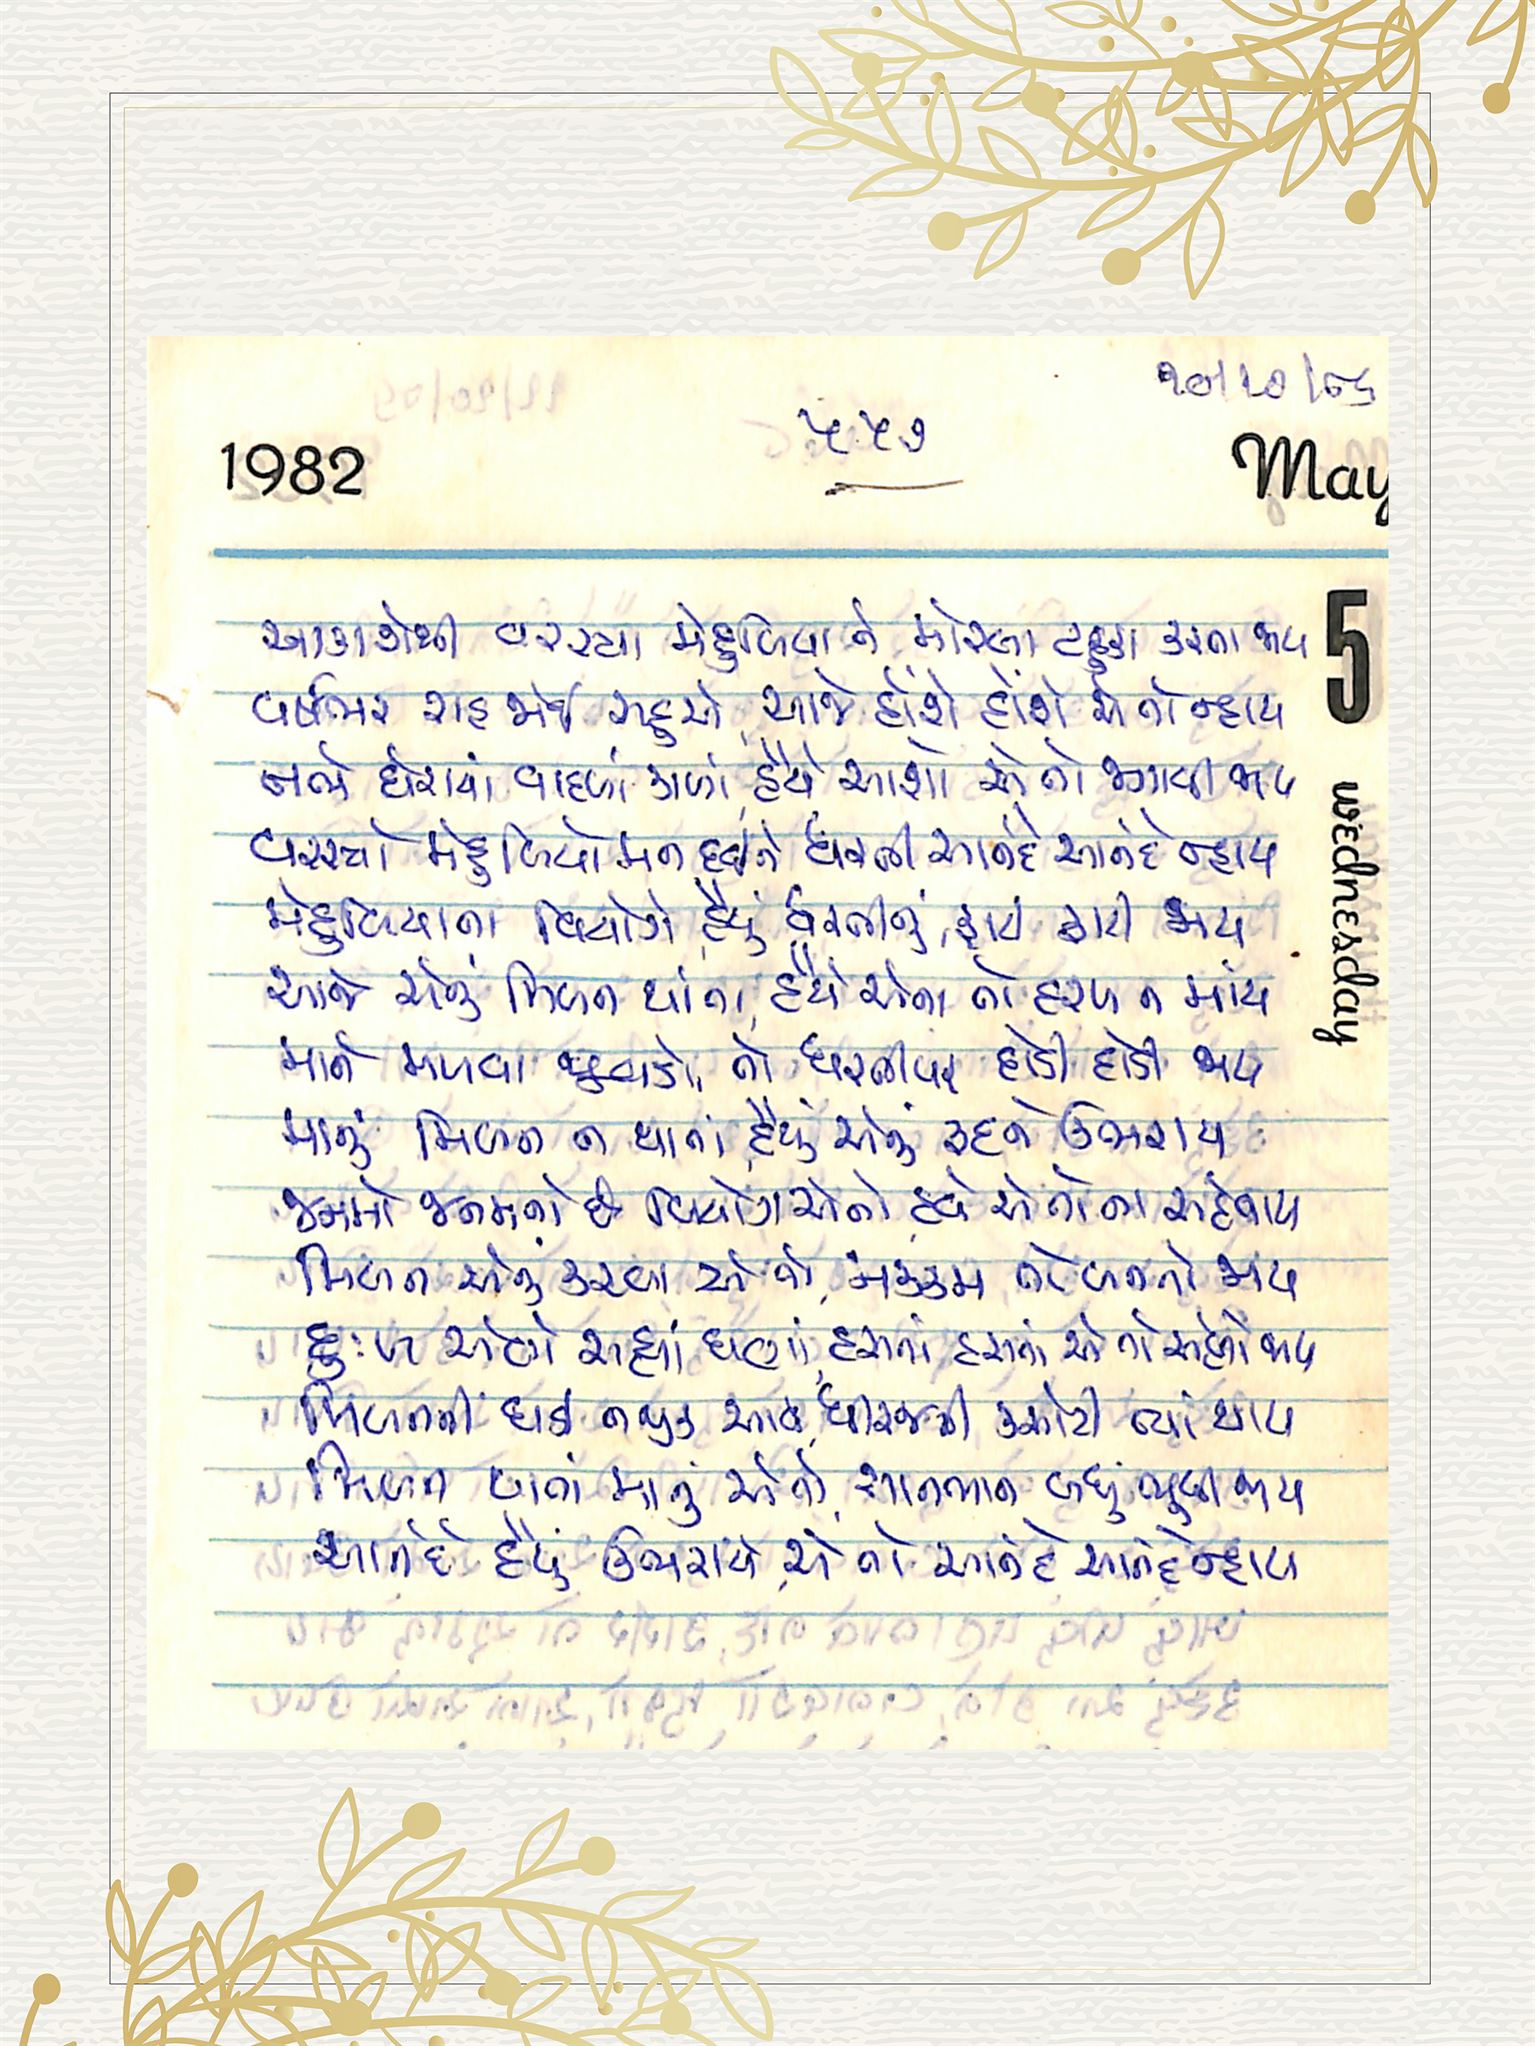 ૧૦/૧૦/૮૬
૫૫૭
1982
May
5
wednesday
આકાશેથી વરસ્યા મેહુલિયા ને મોરલા ટહુકા કરતા જાય
વર્ષભર રાહ જોઈ સહુએ, આજે હોંશે હોંશે એ તો ન્હાય
નભે ઘેરાયાં વાદળાં કાળાં, હૈયે આશા એ તો જગાવી જાય
વરસ્યો મેહુલિયો મન દઈને ધરણી આનંદે આનંદે ન્હાય
મેહુલિયાના વિયોગે, હૈયું ધરતીનું, ફાટી ફાટી જાય
આજે એનું મિલન થાતાં, હૈયે એના તો હરખ ન માય
માને મળવા જીવડો, તો ધરણીપર દોડી દોડી જાય
માનું મિલન ન થાતાં, હૈયું એનું રુદને ઉભરાય
જનમો જનમનો છે વિયોગ એનો, હવે એ તો ના સહેવાય
મિલન એનું કરવા એ તો, મક્કમ તો બનતો જાય
દુઃખ એણે સહ્યાં ઘણાં, હસતાં હસતાં એ તો સહેતો જાય
મિલનની ઘડી નજીક આવે, ધીરજની કસોટી ત્યાં થાય
મિલન થાતાં માનું એને, ભાનસાન બધું ભુલી જાય
આનંદે હૈયું ઉભરાયે, એ તો આનંદે આનંદે ન્હાય